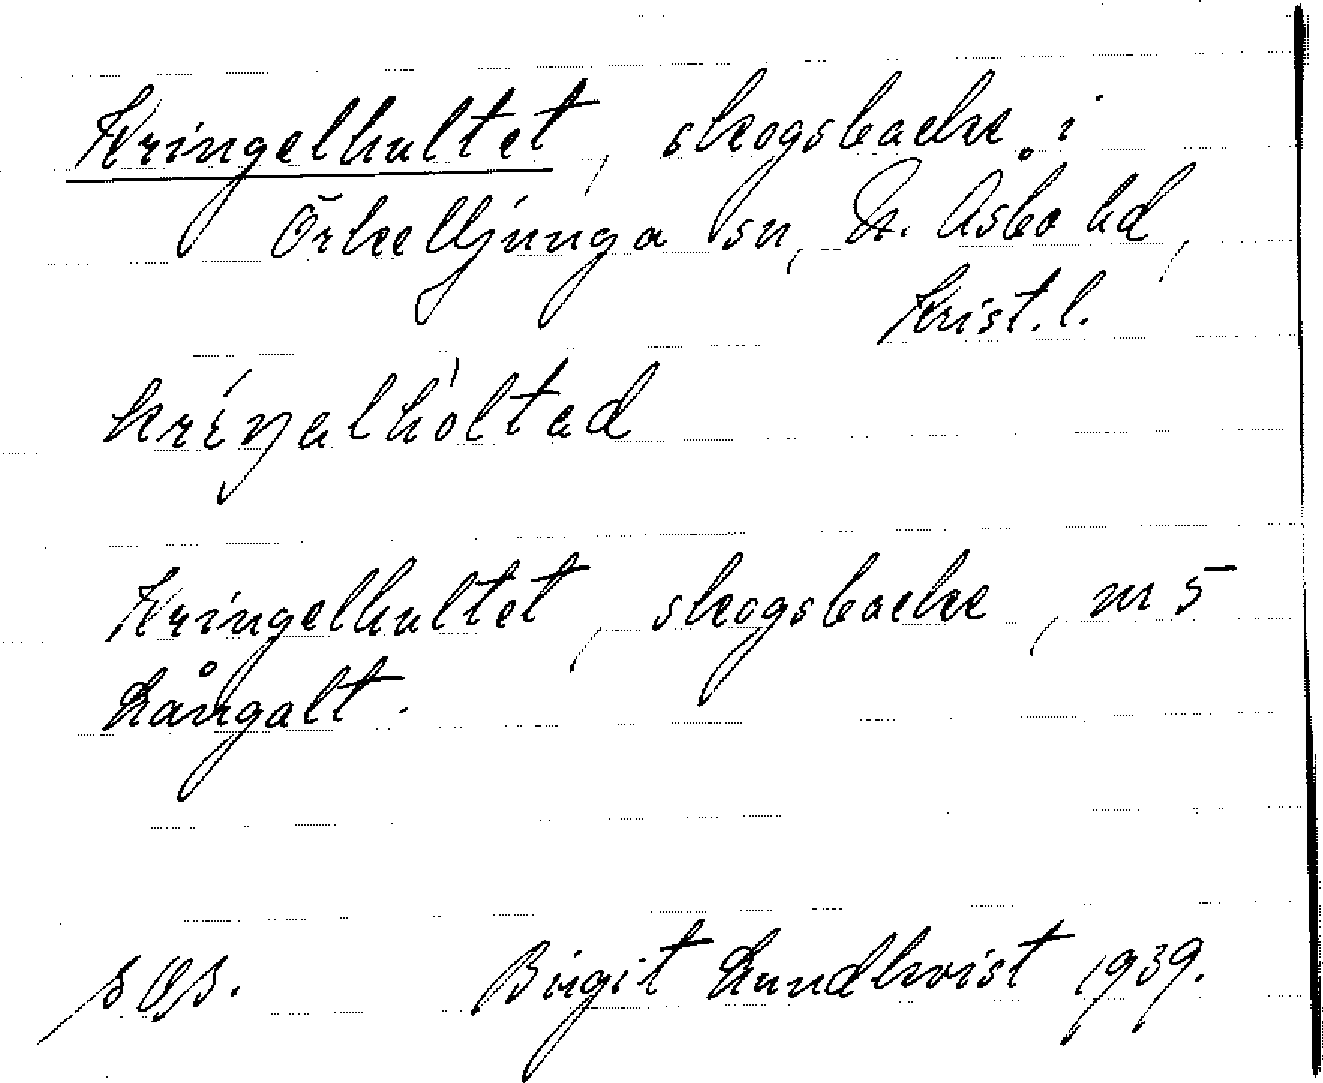 Kringelhultet, skogsbacke i
Örkelljunga sn, N. Åsbo hd,
Krist. l.
kríŋəlhòltəd
Kringelhultet, skogsbacke, nr 5
Långalt.
Birgit Lundkvist 1939.